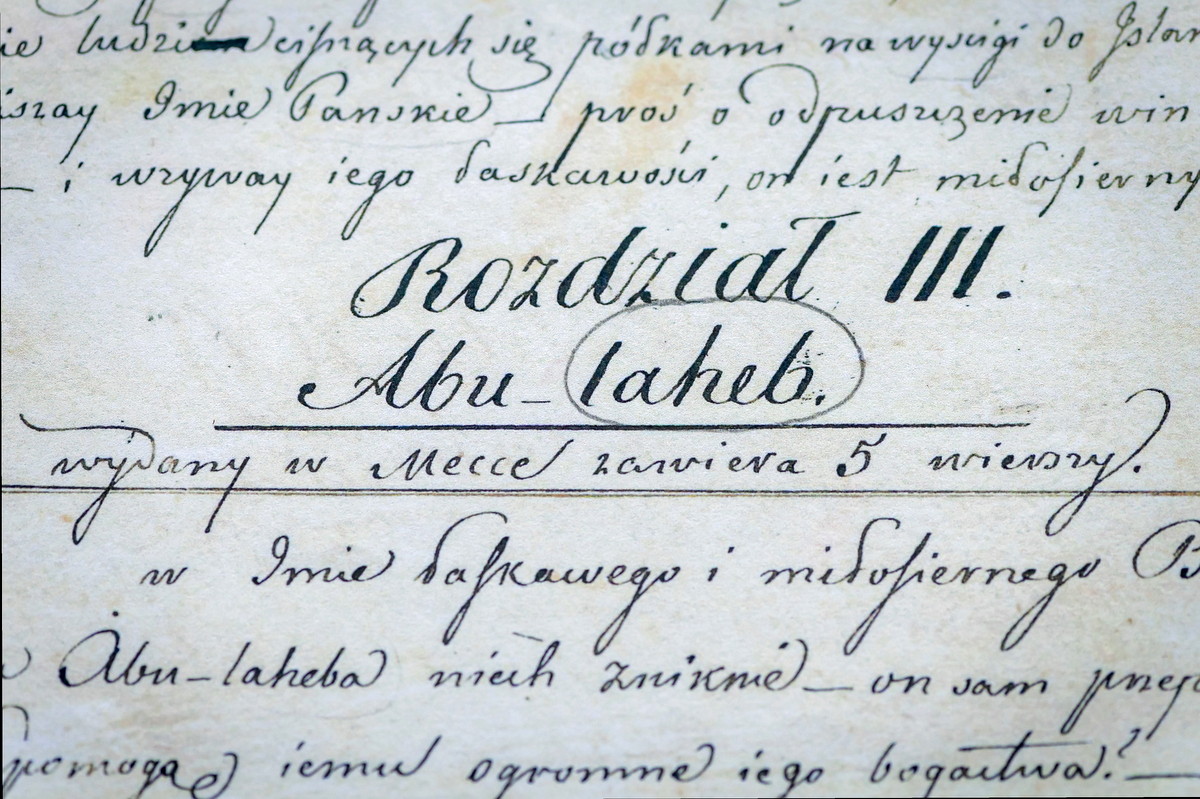 ie ludzi cisnących się półkami na wyscigi do Islam
iszay Imie Panskie — proś o odpuszczenie win
— i wzyway iego łaskawości, on iest miłosierny
Rozdział III.
Abu-laheb.
wydany w Mecce zawiera 5 wierszy.
w Imie łaskawego i miłosiernego B
Abu-laheba niech zniknie — on sam przep
pomogą iemu ogromne iego bogactwa? —